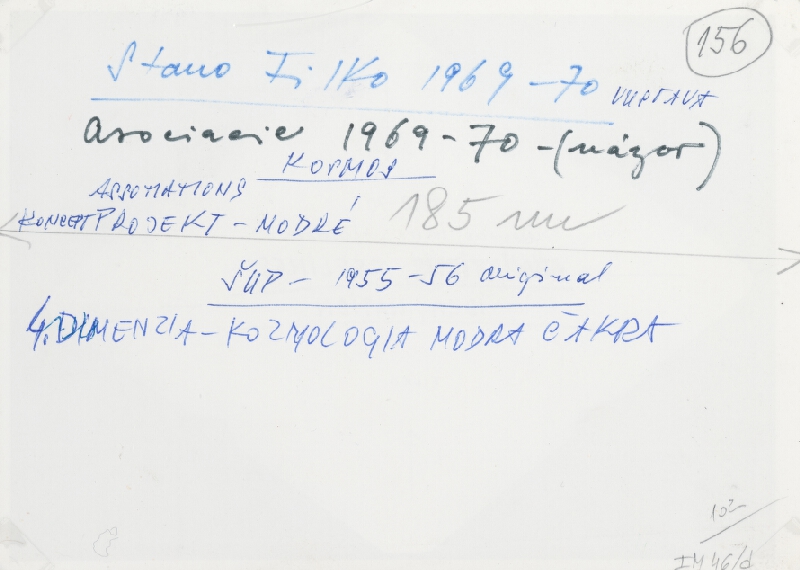 156
Stano Filko 1969-70 VÝSTAVA
Asociacie 1969-70-(názor)
KOZMOS
ASSOTIATIONS
KONCEPT PROJEKT - MODRÉ 185 mm
ŠUP - 1955-56 original
4. DIMENZIA - KOZMOLOGIA MODRA ČAKRA
102-
IM 46/d